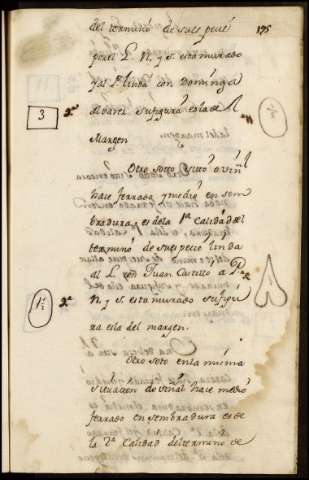 del termino de su especie 195
por el L. N. y S. esta murado
y al P.te linda con Dominga
3 2ª Alvarez su figura es la del
Margen
Otro soto sito o vinl
hace ferrado y medio en sem
bradura, es de la 1ª Calidad del
termino de su especie linda
al L. con Juan Castillo a P.
2ª N. y S. esta murado su figu
ra es la del margen.
Otro soto en la misma
situacion de vinal hace medio
ferrado en sembradura es de
la 2ª Calidad del termino de